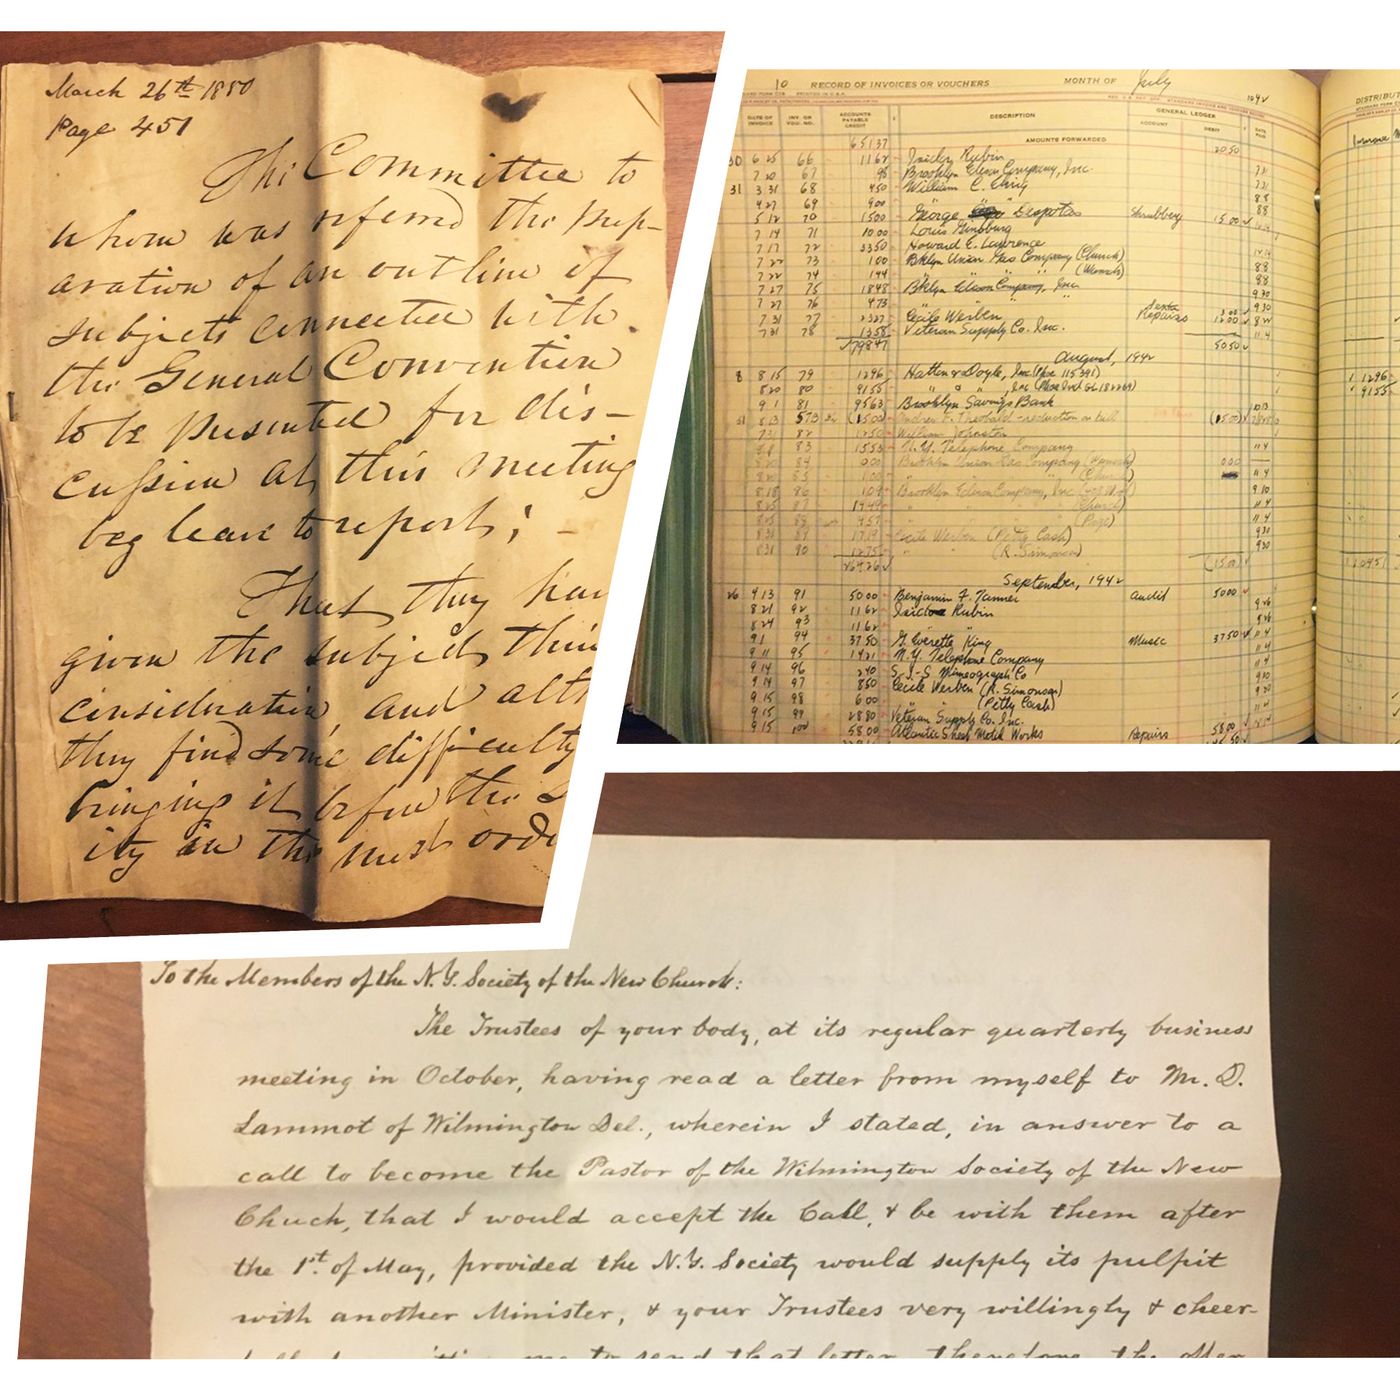 March 26th 1850
Page 451
The Committee to
whom was referred the prep-
aration of an outline of
subjects connected with
the General Convention
to be presented for dis-
cussion at this meeting
beg leave to report;
That they hav
given the subject this
consideration, and alth
they find some difficulty
bringing it before the S
ity in the most orde
10 RECORD OF INVOICES OR VOUCHERS MONTH OF July 1942
DATE OF INVOICE INV. OR VOU. NO. ACCOUNTS PAYABLE CREDIT DESCRIPTION GENERAL LEDGER ACCOUNT DEBIT DATE PAID DISTRIBUT
65137 AMOUNTS FORWARDED 2050
30 6 25 66 1162 Isidor Rubin
7 20 67 98 Brooklyn Edison Company, Inc.
31 3 31 68 450 William C.
4 27 69 900
5 12 70 1500 George Despotas Shrubbery 1500
7 14 71 1000 Louis Ginsburg
7 17 72 3350 Howard E. Lawrence
7 27 73 100 Bklyn Union Gas Company (Church)
7 22 74 144 " " " " (Manse)
7 27 75 1848 Bklyn Edison Company, Inc.
7 27 76 473 " " "
7 31 77 2327 Cecile Werben Repairs 1200
7 31 78 1358 Veteran Supply Co. Inc.
79847 5050
August, 1942
8 8 15 79 1296 Hatten & Doyle, Inc (Phoe 115391) 1296
8 20 80 9155 " " " Inc (Phoe Ind GL 182269) 9155
9 1 81 9563 Brooklyn Savings Bank
31 573 (1500) reduction on bill (1500)
82 1250 William Johnston
83 1553 N.Y. Telephone Company
84 Brooklyn Union Gas Company (Manse)
85 100 " " " " (Church)
8 18 86 109 Brooklyn Edison Company, Inc
87 1949 (Church)
88 457
8 31 89 1719 Cecile Werben (Petty Cash)
8 31 90 1275 " " (R. Simonson)
26426 (1500)
September, 1942
26 9 13 91 5000 Benjamin F. Tanner Audit 5000
8 21 92 1162 Isidor Rubin
8 24 93 1162 " "
9 1 94 3750 G. Everette King Music 3750
9 11 95 1421 N.Y. Telephone Company
9 14 96 240 S-J-S Mimeograph Co
9 14 97 850 Cecile Werben (R. Simonson)
9 15 98 600 " " (Petty Cash)
9 15 99 2880 Veteran Supply Co. Inc.
9 15 100 5800 Atlantic Sheet Metal Works Repairs 5800
To the Members of the N.Y. Society of the New Church:
The Trustees of your body, at its regular quarterly business
meeting in October, having read a letter from myself to Mr. D.
Lammot of Wilmington Del., wherein I stated, in answer to a
call to become the Pastor of the Wilmington Society of the New
Chuch, that I would accept the Call, & be with them after
the 1st. of May, provided the N.Y. Society would supply its pulpit
with another Minister, & your Trustees very willingly & cheer-
to send that letter, therefore, the offer